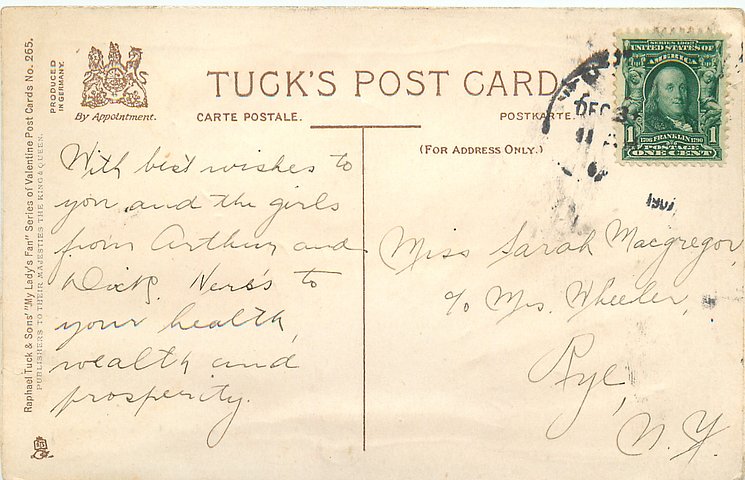 Raphael Tuck & Sons' "My Lady's Fan" Series of Valentine Post Cards No. 265.
PUBLISHERS TO THEIR MAJESTIES THE KING & QUEEN.
PRODUCED
IN GERMANY.
By Appointment.
TUCK'S POST CARD
CARTE POSTALE.
POSTKARTE.
(FOR ADDRESS ONLY.)
With best wishes to
you and the girls
from Arthur and
Dick. Here's to
your health,
wealth and
prosperity.
SERIES 1902
UNITED STATES OF
AMERICA
1706 FRANKLIN 1790
1 POSTAGE 1
ONE CENT
DEC
11
1907
Miss Sarah Macgregor,
c/o Mrs. Wheeler,
Rye,
N.Y.